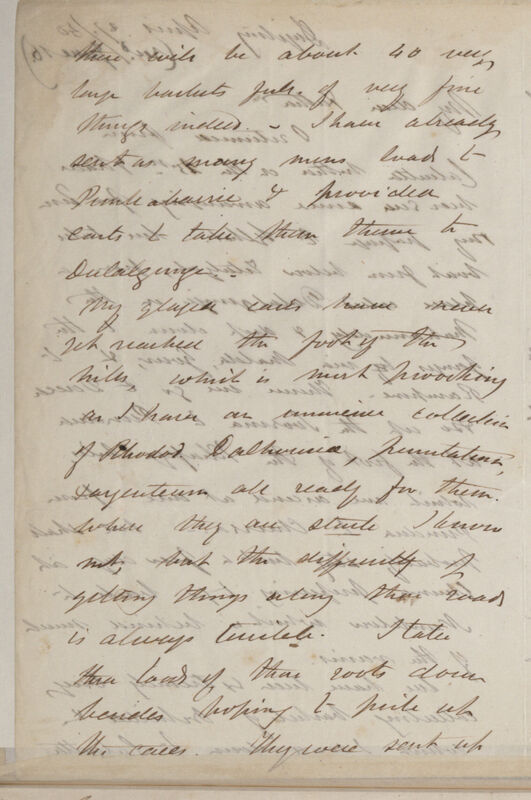 there will be about 40 very
large baskets full of very fine
things indeed. - I have already
sent as many mens load to
Punkabarrie & provided
carts to take them thence to
Dulalgunge -
My glazed cases have never
yet reached the foot of the
hills, which is most provoking
as I have an immense collection
of Rhodod Dalhousiæ,
argenteum all ready for them.
where they are stuck I know
not, but the difficulty of
getting things along that road
is always terrible. I take
loads of roots down
besides hoping to pick up
the cases. They were sent up